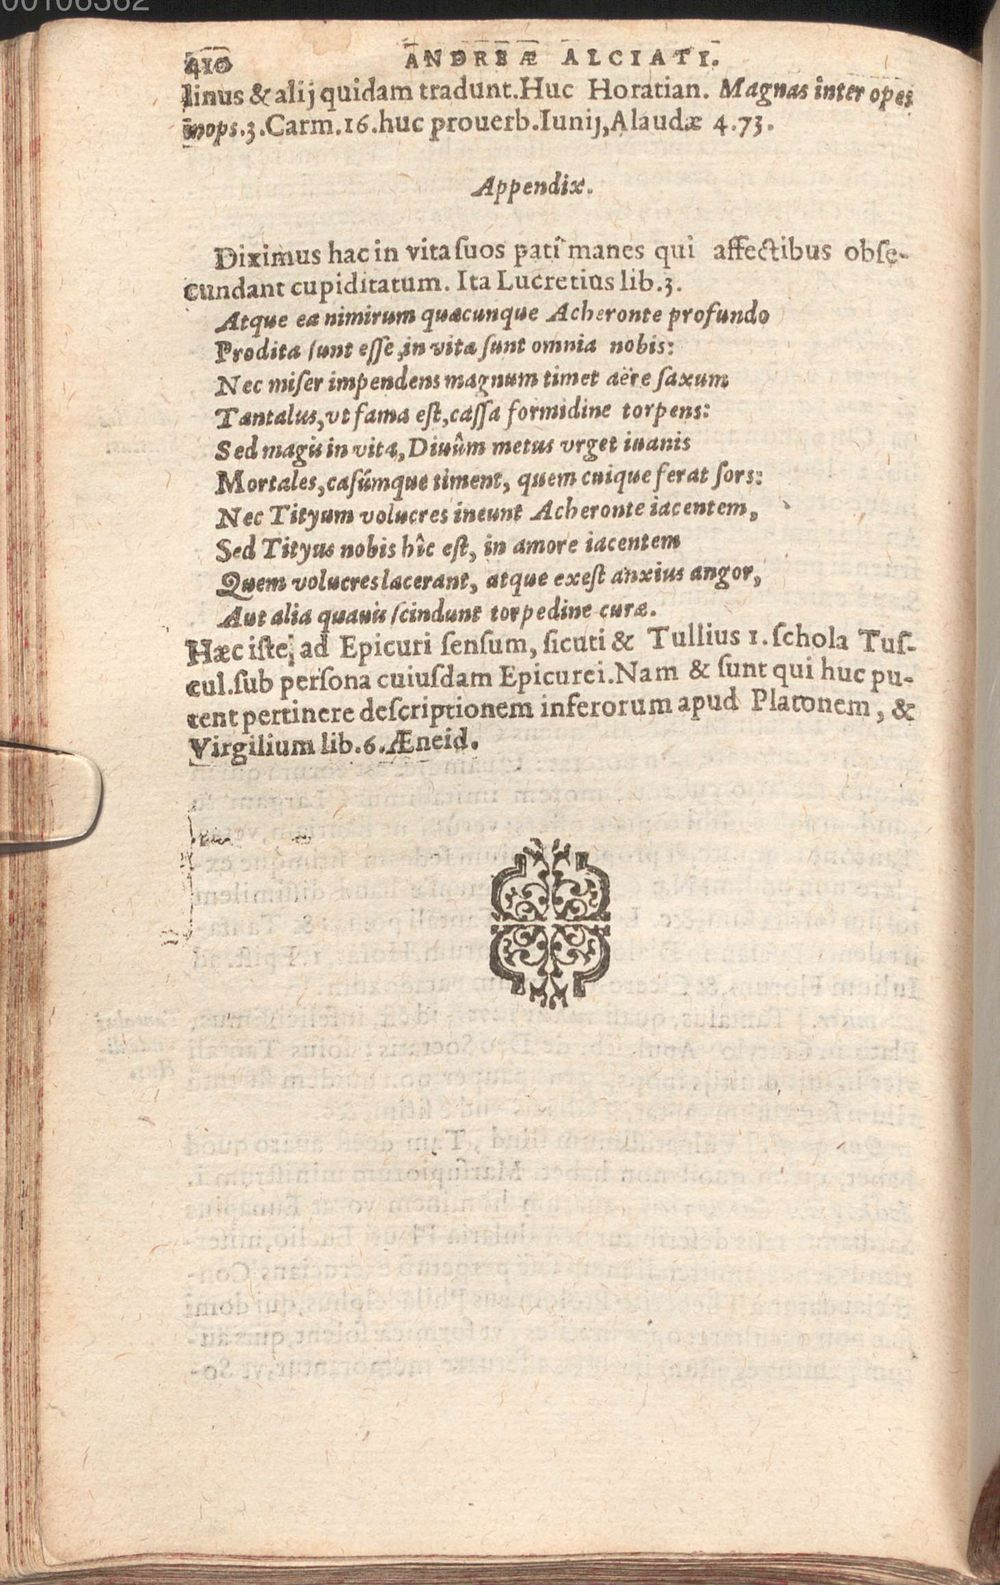 00106362
410 ANDREÆ ALCIATI.
linus & alij quidam tradunt. Huc Horatian. Magnas inter opes
inops. 3. Carm. 16. huc prouerb. Iunij, Alaudæ 4. 73.
Appendix.
Diximus hac in vita suos pati manes qui affectibus obse-
cundant cupiditatum. Ita Lucretius lib. 3.
Atque ea nimirum quæcunque Acheronte profundo
Prodita sunt esse, in vita sunt omnia nobis:
Nec miser impendens magnum timet aëre saxum
Tantalus, vt fama est, cassa formidine torpens:
Sed magis in vita, Diuûm metus vrget inanis
Mortales, casúmque timent, quem cuique ferat sors:
Nec Tityum volucres ineunt Acheronte iacentem,
Sed Tityus nobis hîc est, in amore iacentem
Quem volucres lacerant, atque exest anxius angor,
Aut alia quauis scindunt torpedine curæ.
Hæc iste, ad Epicuri sensum, sicuti & Tullius 1. schola Tus-
cul. sub persona cuiusdam Epicurei. Nam & sunt qui huc pu-
tent pertinere descriptionem inferorum apud Platonem, &
Virgilium lib. 6. Æneid.